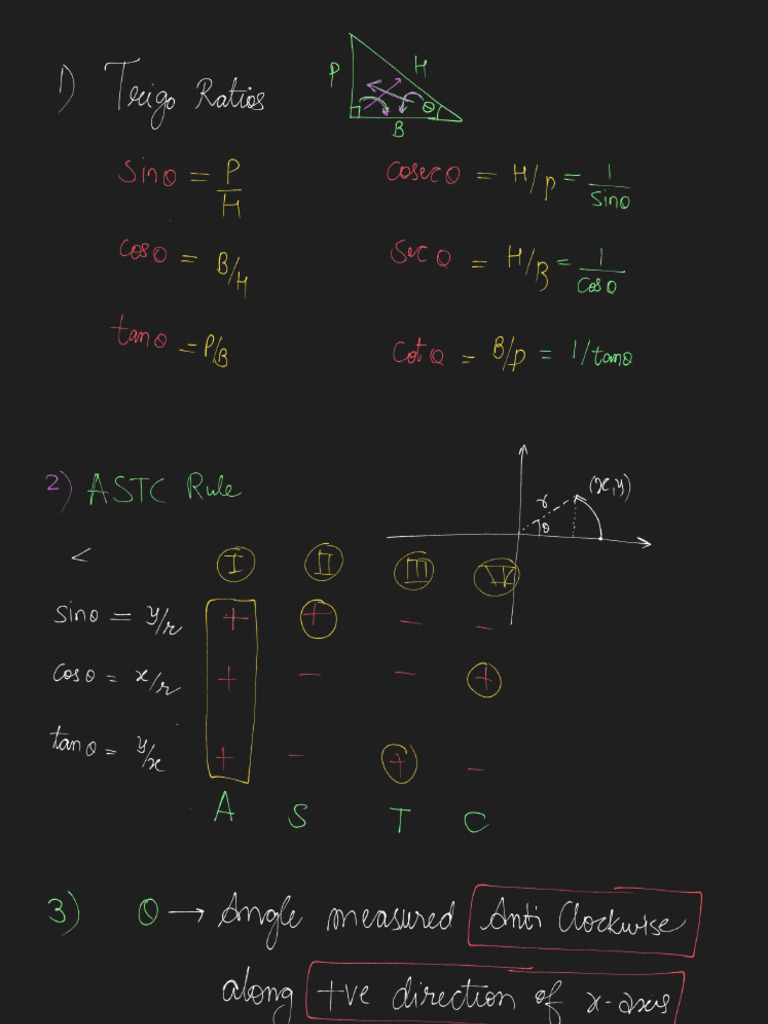 1) Trigo Ratios
P H θ B
sinθ = P/H cosecθ = H/P = 1/sinθ
cosθ = B/H secθ = H/B = 1/cosθ
tanθ = P/B cotθ = B/P = 1/tanθ
2) ASTC Rule
r θ (x,y)
< I II III IV
sinθ = y/r + + - -
cosθ = x/r + - - +
tanθ = y/x + - + -
A S T C
3) θ → Angle measured Anti Clockwise
along +ve direction of x-axis